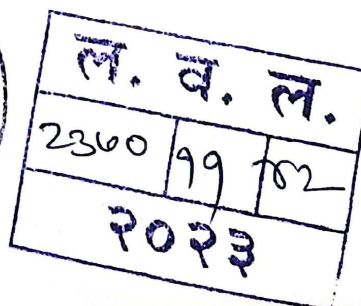 ल. व. ल.
2360 १९
२०२३